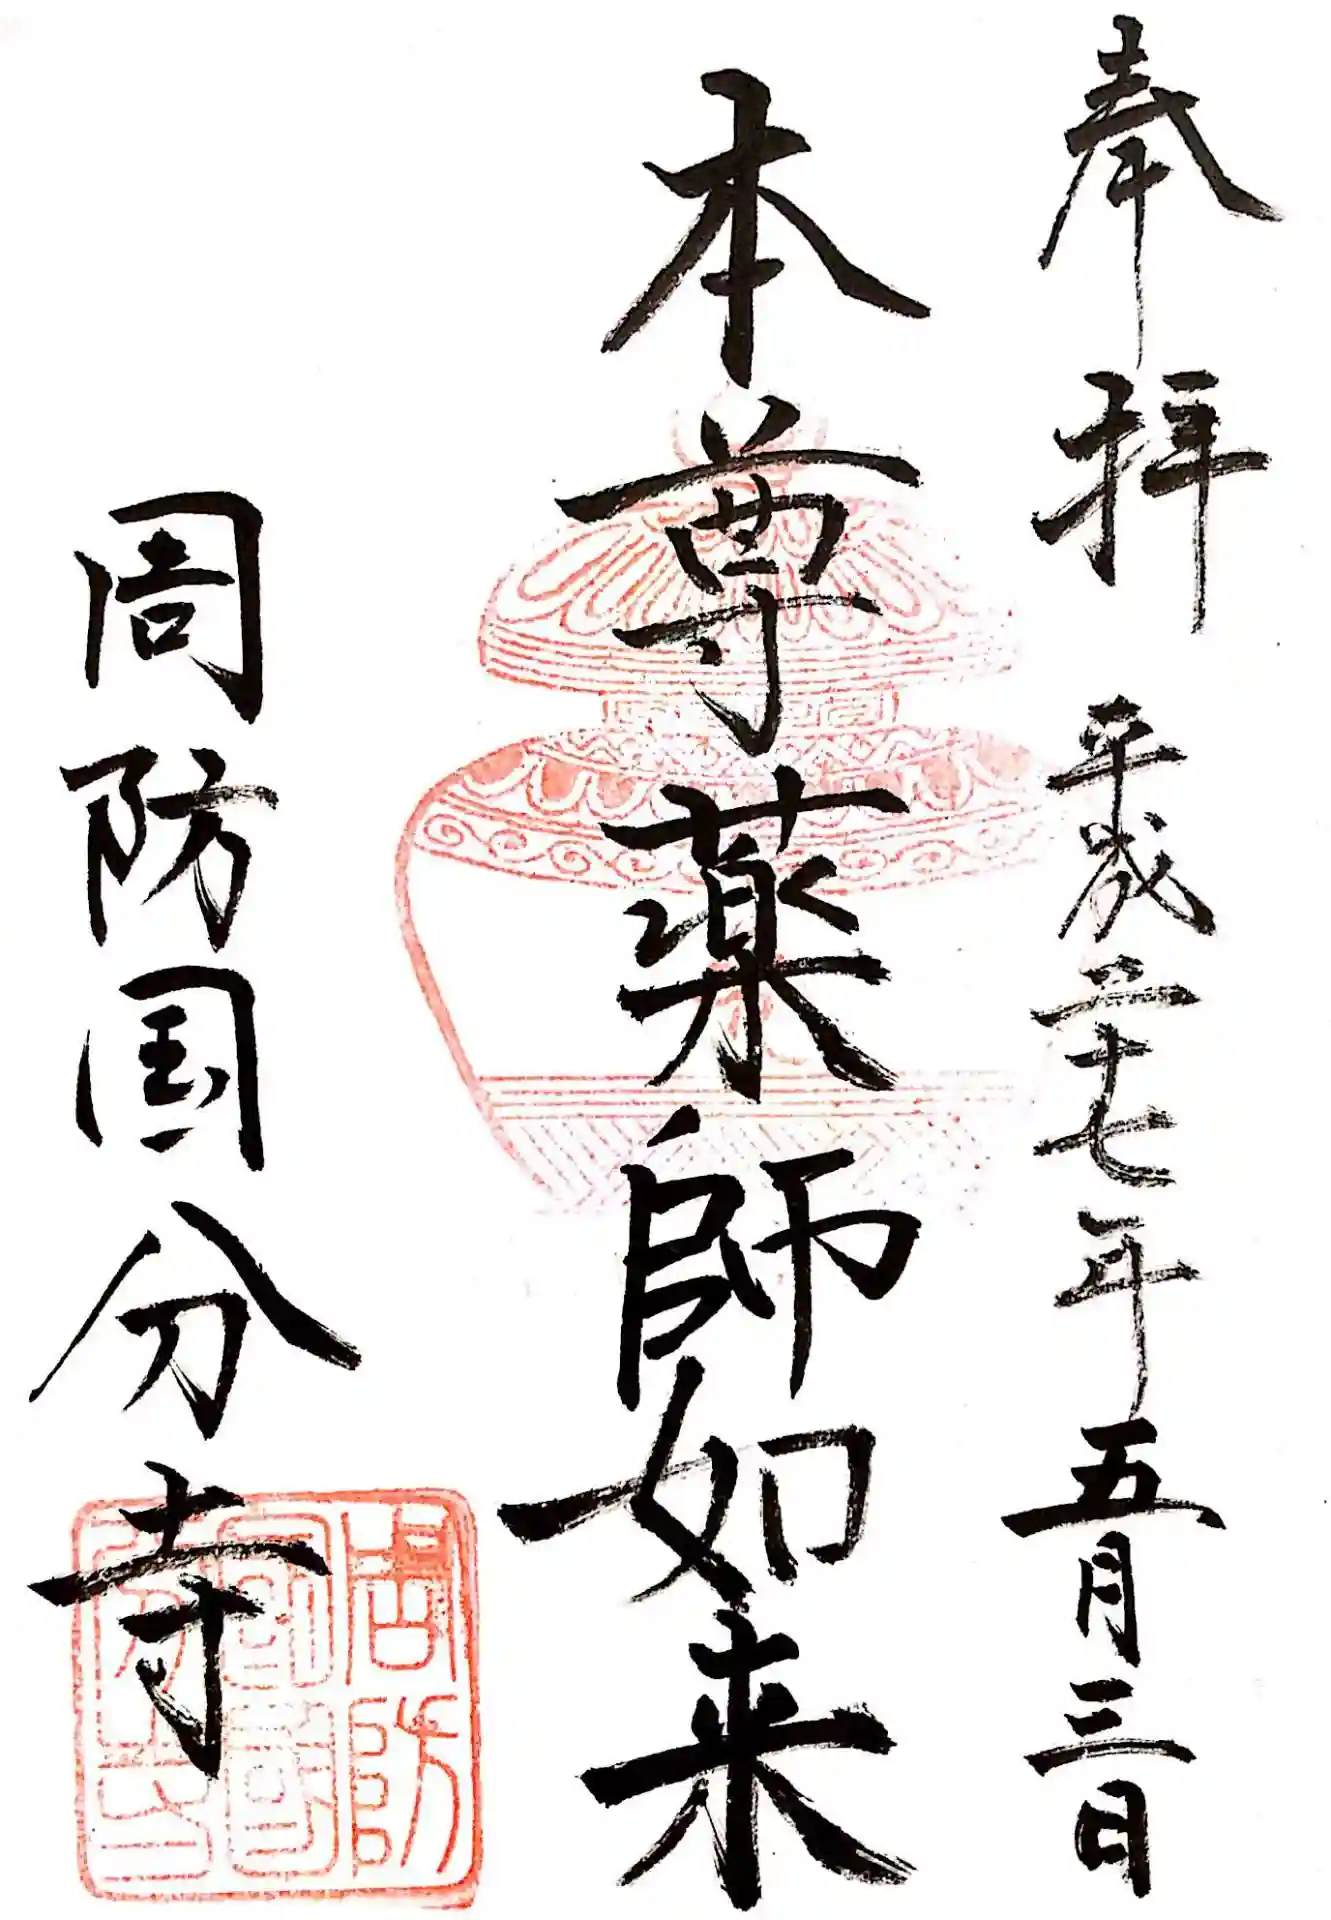 奉拝 平成二十七年五月三日
本尊薬師如来
周防国分寺
周防